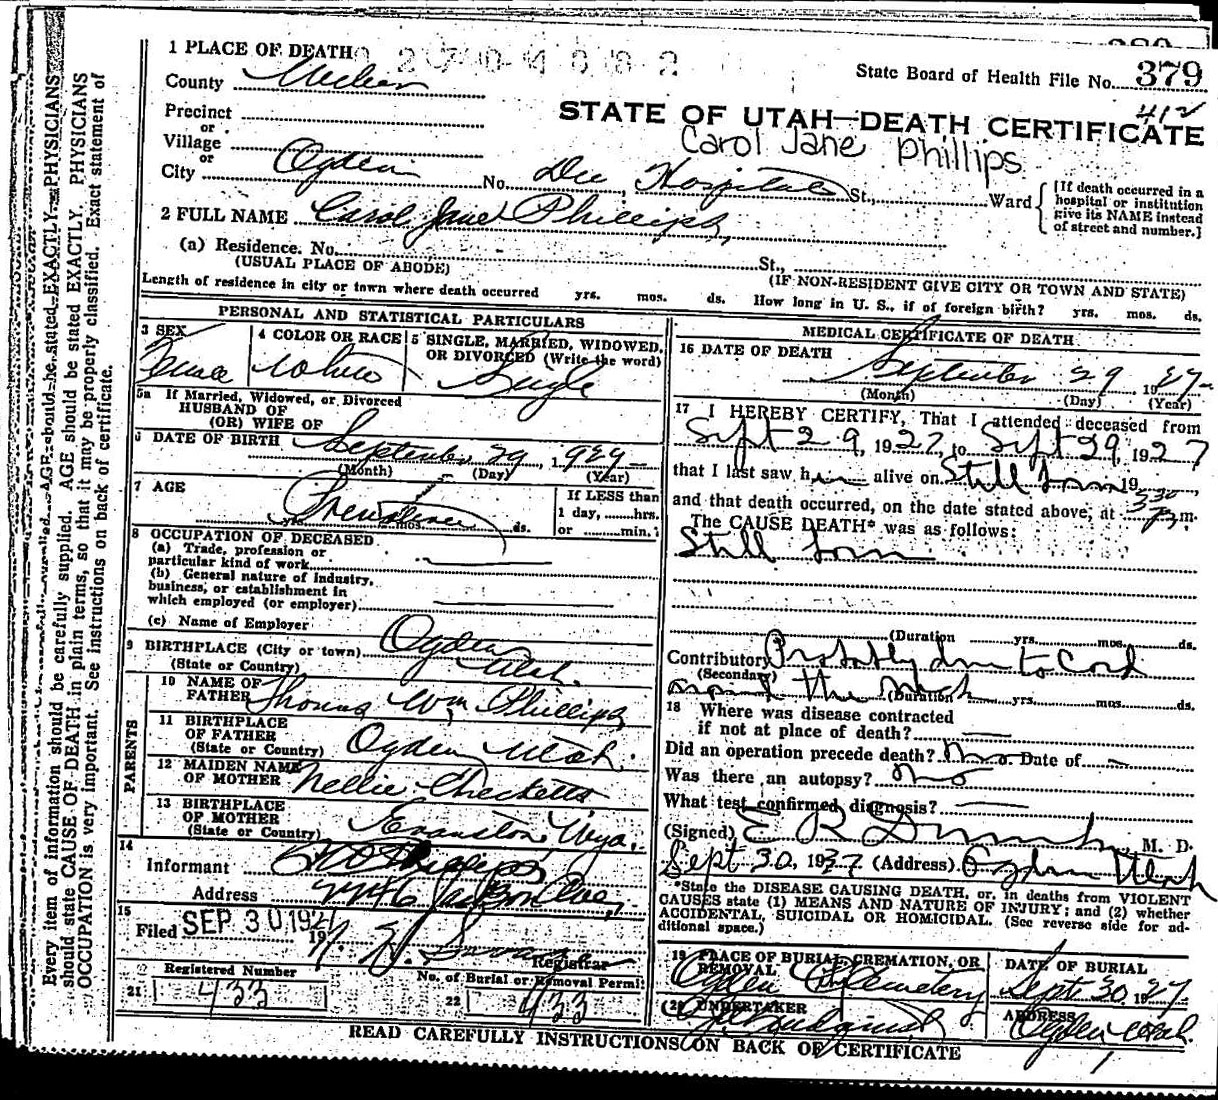 1 PLACE OF DEATH
State Board of Health File No. 379
County Weber
412
Precinct
STATE OF UTAH—DEATH CERTIFICATE
or
Carol Jane Phillips
Village
or
City Ogden No. Dee Hospital St., Ward
[If death occurred in a
hospital or institution
give its NAME instead
of street and number.]
2 FULL NAME Carol Jane Phillips,
(a) Residence. No. St.,
(USUAL PLACE OF ABODE) (IF NON-RESIDENT GIVE CITY OR TOWN AND STATE)
Length of residence in city or town where death occurred yrs. mos. ds. How long in U. S., if of foreign birth? yrs. mos. ds.
PERSONAL AND STATISTICAL PARTICULARS
3 SEX
4 COLOR OR RACE
5 SINGLE, MARRIED, WIDOWED,
OR DIVORCED (Write the word)
Female White Single
5a If Married, Widowed, or Divorced
HUSBAND OF
(OR) WIFE OF
6 DATE OF BIRTH September 29, 1
(Month) (Day) (Year)
7 AGE
yrs. mos. ds.
If LESS than
1 day, hrs.
or min.
8 OCCUPATION OF DECEASED
(a) Trade, profession or
particular kind of work
(b) General nature of industry,
business, or establishment in
which employed (or employer)
(c) Name of Employer
9 BIRTHPLACE (City or town) Ogden
(State or Country) Utah.
PARENTS
10 NAME OF
FATHER Thomas Wm Phillips
11 BIRTHPLACE
OF FATHER
(State or Country) Ogden Utah.
12 MAIDEN NAME
OF MOTHER Nellie Checketts
13 BIRTHPLACE
OF MOTHER
(State or Country) Evanston, Wyo.
14
Informant
Address Jackson Ave,
15
Filed SEP 30 1927
19
Registrar
Registered Number
21 433
No. of Burial or Removal Permit
22 433
MEDICAL CERTIFICATE OF DEATH
16 DATE OF DEATH
September 29 1927
(Month) (Day) (Year)
17 I HEREBY CERTIFY, That I attended deceased from
Sept 29, 1927, to Sept 29, 1927
that I last saw h alive on Still born 19
and that death occurred, on the date stated above, at 530 m.
The CAUSE DEATH* was as follows:
Still born
(Duration yrs. mos. ds.
Contributory Probably due to Cord
(Secondary)
around the neck (Duration yrs. mos. ds.
18 Where was disease contracted
if not at place of death?
Did an operation precede death? No Date of
Was there an autopsy? No
What test confirmed diagnosis?
(Signed) E R , M. D.
Sept 30, 1927 (Address) Ogden Utah
*State the DISEASE CAUSING DEATH, or, in deaths from VIOLENT
CAUSES state (1) MEANS AND NATURE OF INJURY; and (2) whether
ACCIDENTAL, SUICIDAL OR HOMICIDAL. (See reverse side for ad-
ditional space.)
19 PLACE OF BURIAL, CREMATION, OR
REMOVAL
Ogden Cemetery
DATE OF BURIAL
Sept. 30, 1927
(20) UNDERTAKER
ADDRESS
Ogden Utah.
READ CAREFULLY INSTRUCTIONS ON BACK OF CERTIFICATE
Every item of information should be carefully supplied. AGE should be stated EXACTLY. PHYSICIANS
should state CAUSE OF DEATH in plain terms, so that it may be properly classified. Exact statement of
OCCUPATION is very important. See instructions on back of certificate.